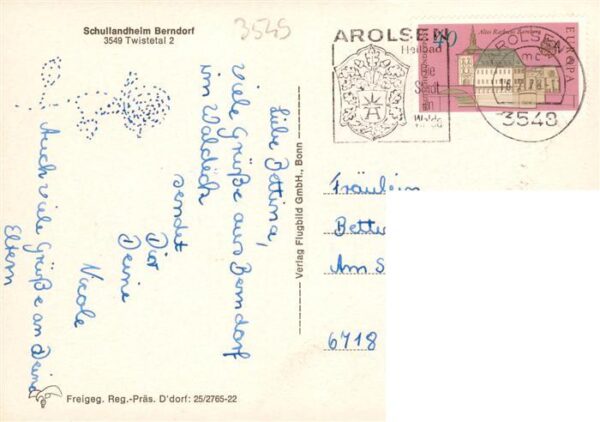 Schullandheim Berndorf
3549 Twistetal 2
3545
Liebe Bettina,
viele Grüße aus Berndorf
im Waldeck
sendet
Dir
Deine
Nicole
Auch viele Grüße an Deine
Eltern
Freigeg. Reg.-Präs. D'dorf: 25/2765-22
Verlag Flugbild GmbH., Bonn
AROLSEN
Heilbad
die
Stadt
im
Walde
40
Altes Rathaus Bamberg
EUROPA
AROLSEN
mc
3548
Fräulein
Bett
Am S
6718